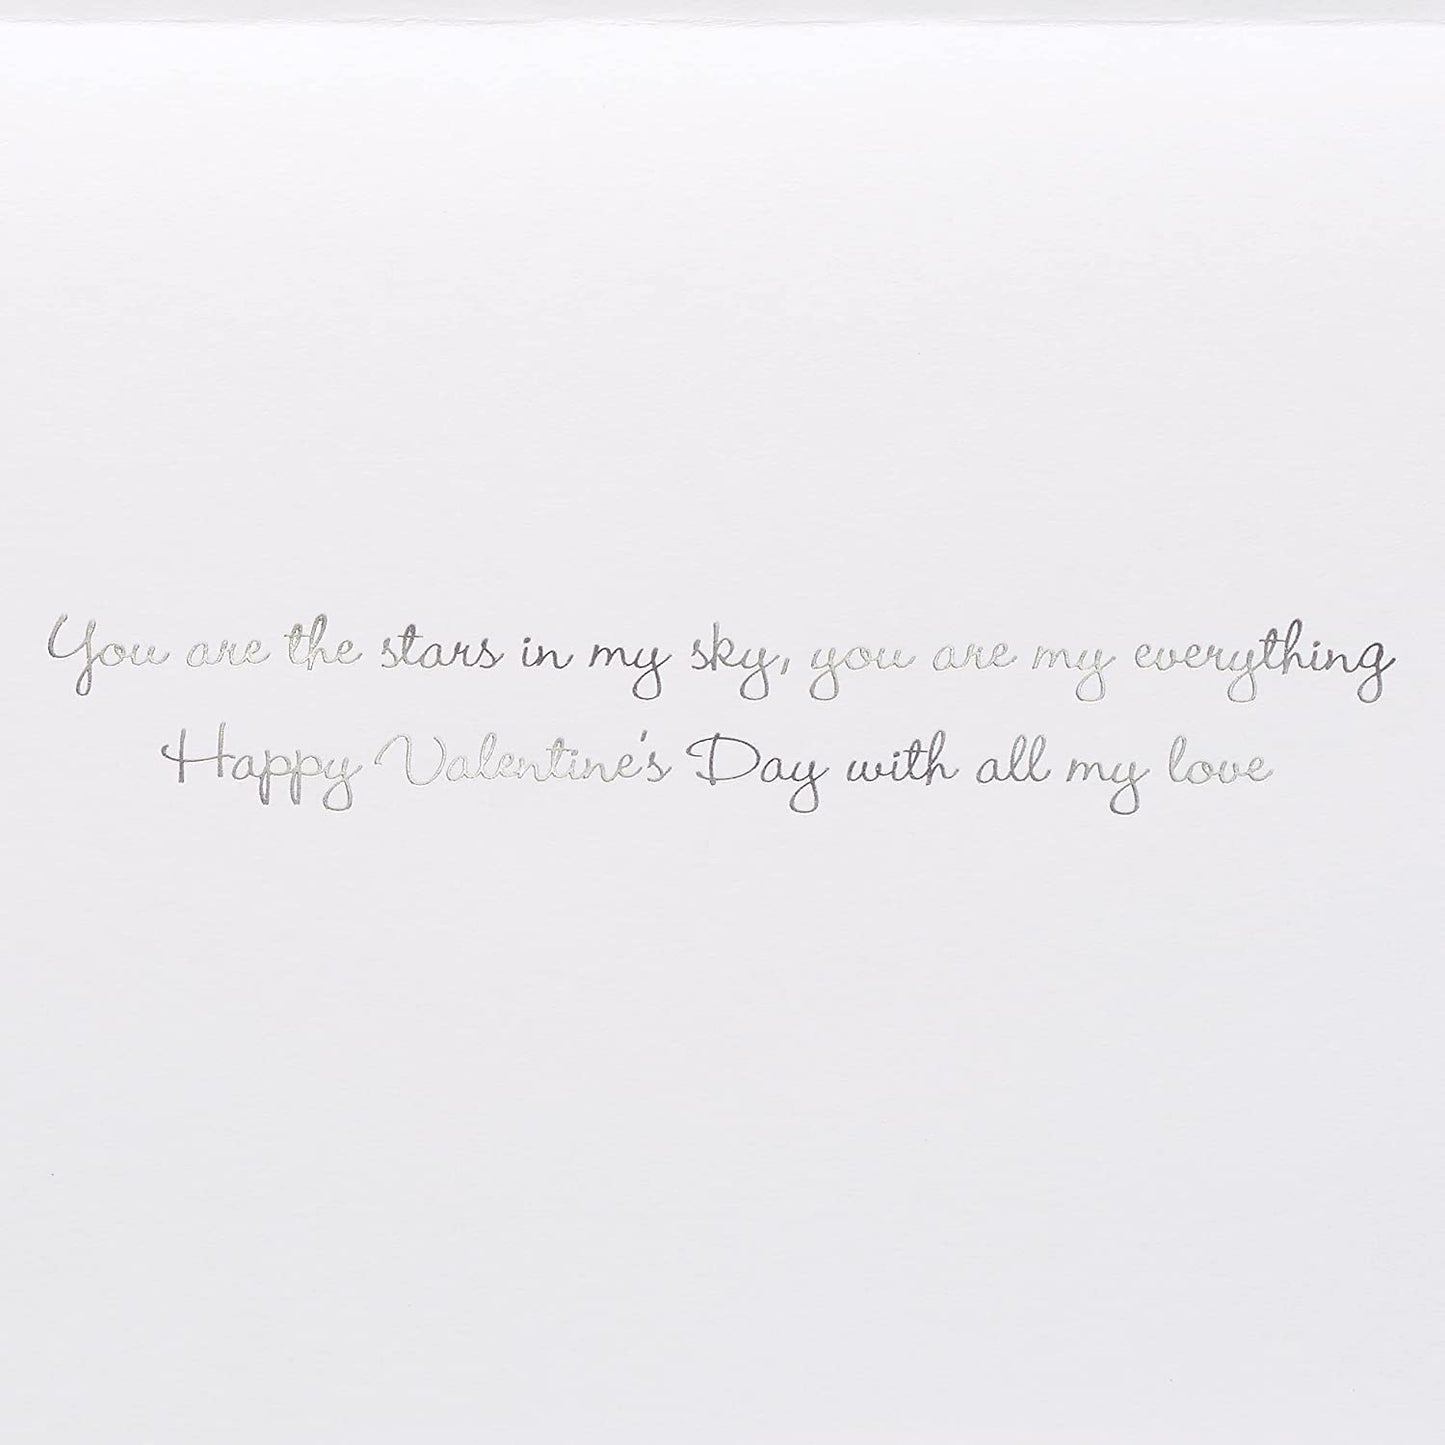 You are the stars in my sky, you are my everything
Happy Valentine's Day with all my love